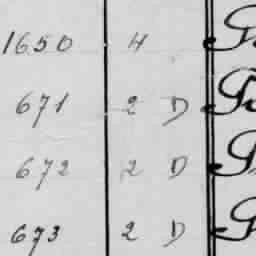 1650 4
671 2 D
672 2 D
673 2 D